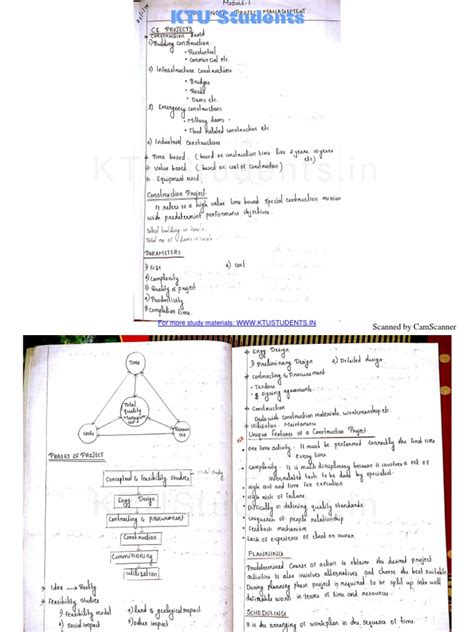 Module-1
KTU Students
PROJECT MANAGEMENT
CE PROJECTS
Construction Based
1) Building construction
• Residential
• Commercial etc
2) Infrastructure construction
• Bridges
• Road
• Dams etc.
3) Emergency constructions
• Military dams
• Flood related construction etc
4) Industrial constructions
* Time based (based on construction time like 5 years, 10 years etc)
* Value based (based on cost of construction)
* Equipment used
Construction Project
It refers to a high value time bound special construction mission
with predetermined performance objectives.
Tallest building in
Total no of dams in
PARAMETERS
1) Size
6) cost
2) Complexity
3) Quality of project
4) Productivity
5) Completion time
For more study materials: WWW.KTUSTUDENTS.IN
Scanned by CamScanner
Time
Total
Quality
Costs
PHASES OF PROJECT
Conceptual & feasibility studies
Engg Design
Contracting & procurement
Construction
Commissioning
Utilisation
* Idea → Reality
* Feasibility Studies
1) Feasibility model
2) Social impact
3) Other impact
* Engg Design
1) Preliminary Design
2) Detailed design
* Contracting & Procurement
• Tendering
• Signing agreements
* Construction
Deals with construction materials, workmanship etc.
* Utilisation - Maintanance
Unique Features of a Construction Project
* One time activity. It must be performed correctly the first time
every time
* Complexity. It is multidisciplinary because it involves a set of
interrelated tasks to be done by specialist.
* High cost and time for execution
* High risk of failure
* Difficulty in defining quality standards
* Uniqueness of people relationship
* Feedback mechanism
* Lack of experience of client or owner
PLANNING
Predetermined course of action to obtain the desired project
activities. It also involves alternatives and choose the best suitable.
During planning phase project is required to be split up into well
definable work in terms of time and resources.
SCHEDULING
It is the arranging of workplan in the sequence of time.